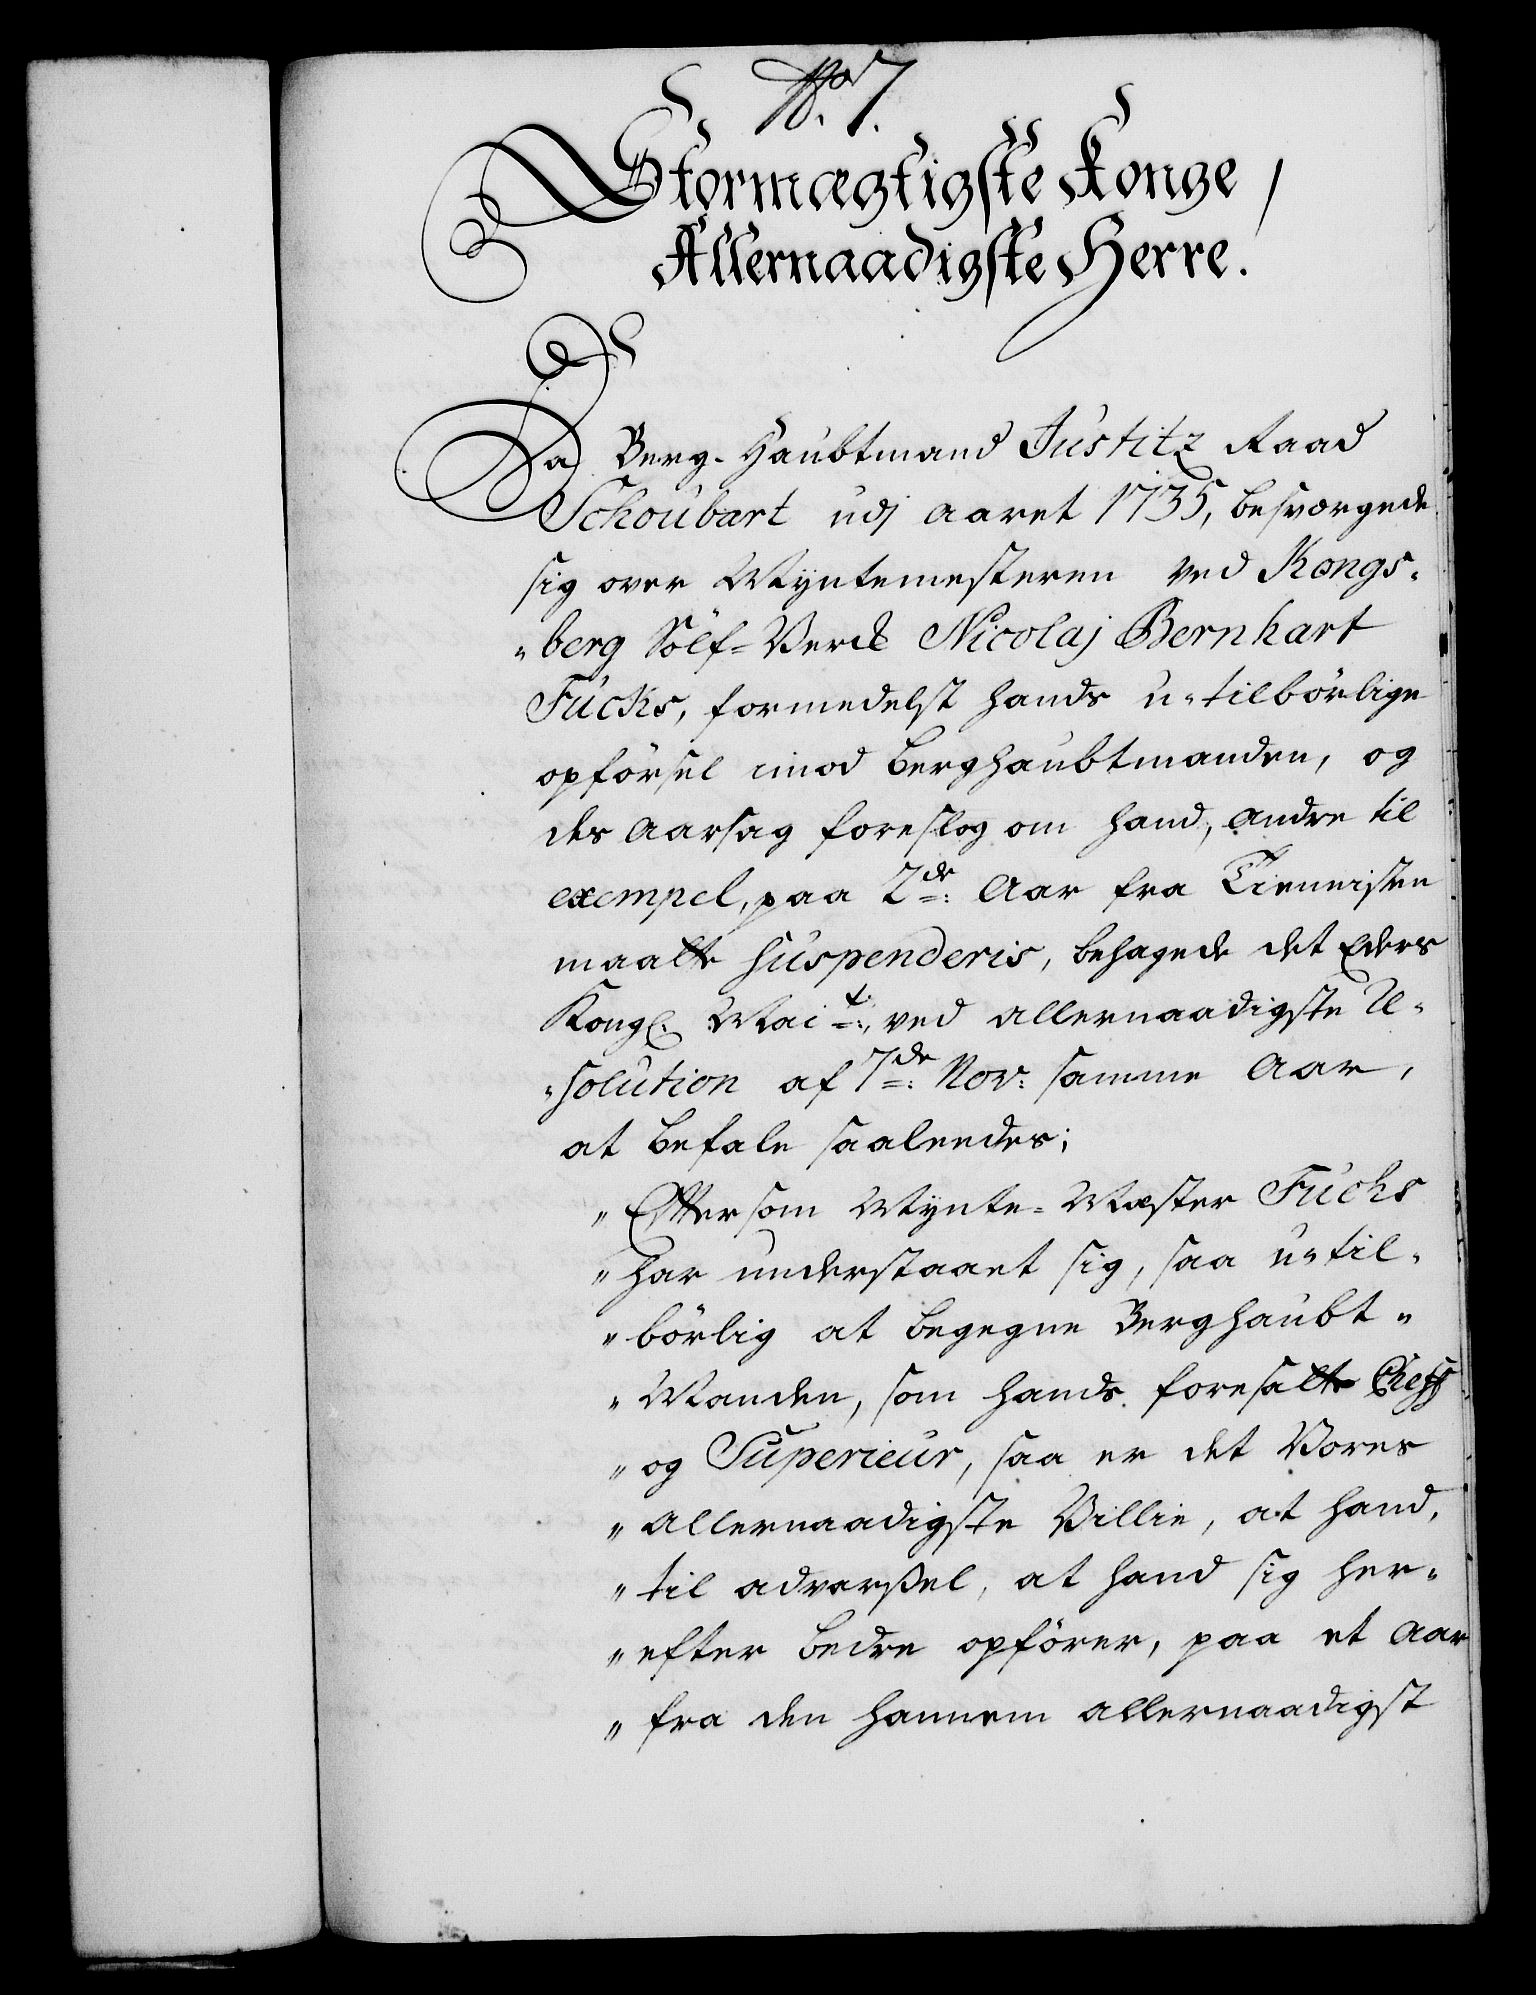 No. 7.
Stormægtigste Konge /
Allernaadigste Herre.
Da Berg-Haubtmand Justitz Raad
Schoubart udj aaret 1735, besværgede
sig over Myntemesteren ved Kongs-
-berg Sölf-Verck Nicolaj Bernhart
Fucks, formedelst hands u-tilbörlige
opförsel imod Berghaubtmanden, og
des Aarsag foreslog om hand, andre til
exempel, paa 2de: Aar fra Tienesten
maatte suspenderis, behagede det Eders
Kongl. Mait:, ved allernaadigste Re-
-solution af 7de: Nov: samme Aar,
at befale saaleedes;
" Eftersom Mynte-Mester Fuchs
" har understaaet sig, saa u-til-
" börlig at begegne Berghaubt-
" Manden, som hands foresatte Cheff
" og Superieur, saa er det Vores
" allernaadigste Villie, at hand,
" til advarßel, at hand sig her-
" efter bedre opförer, paa et Aar
" fra den hannem allernaadigst